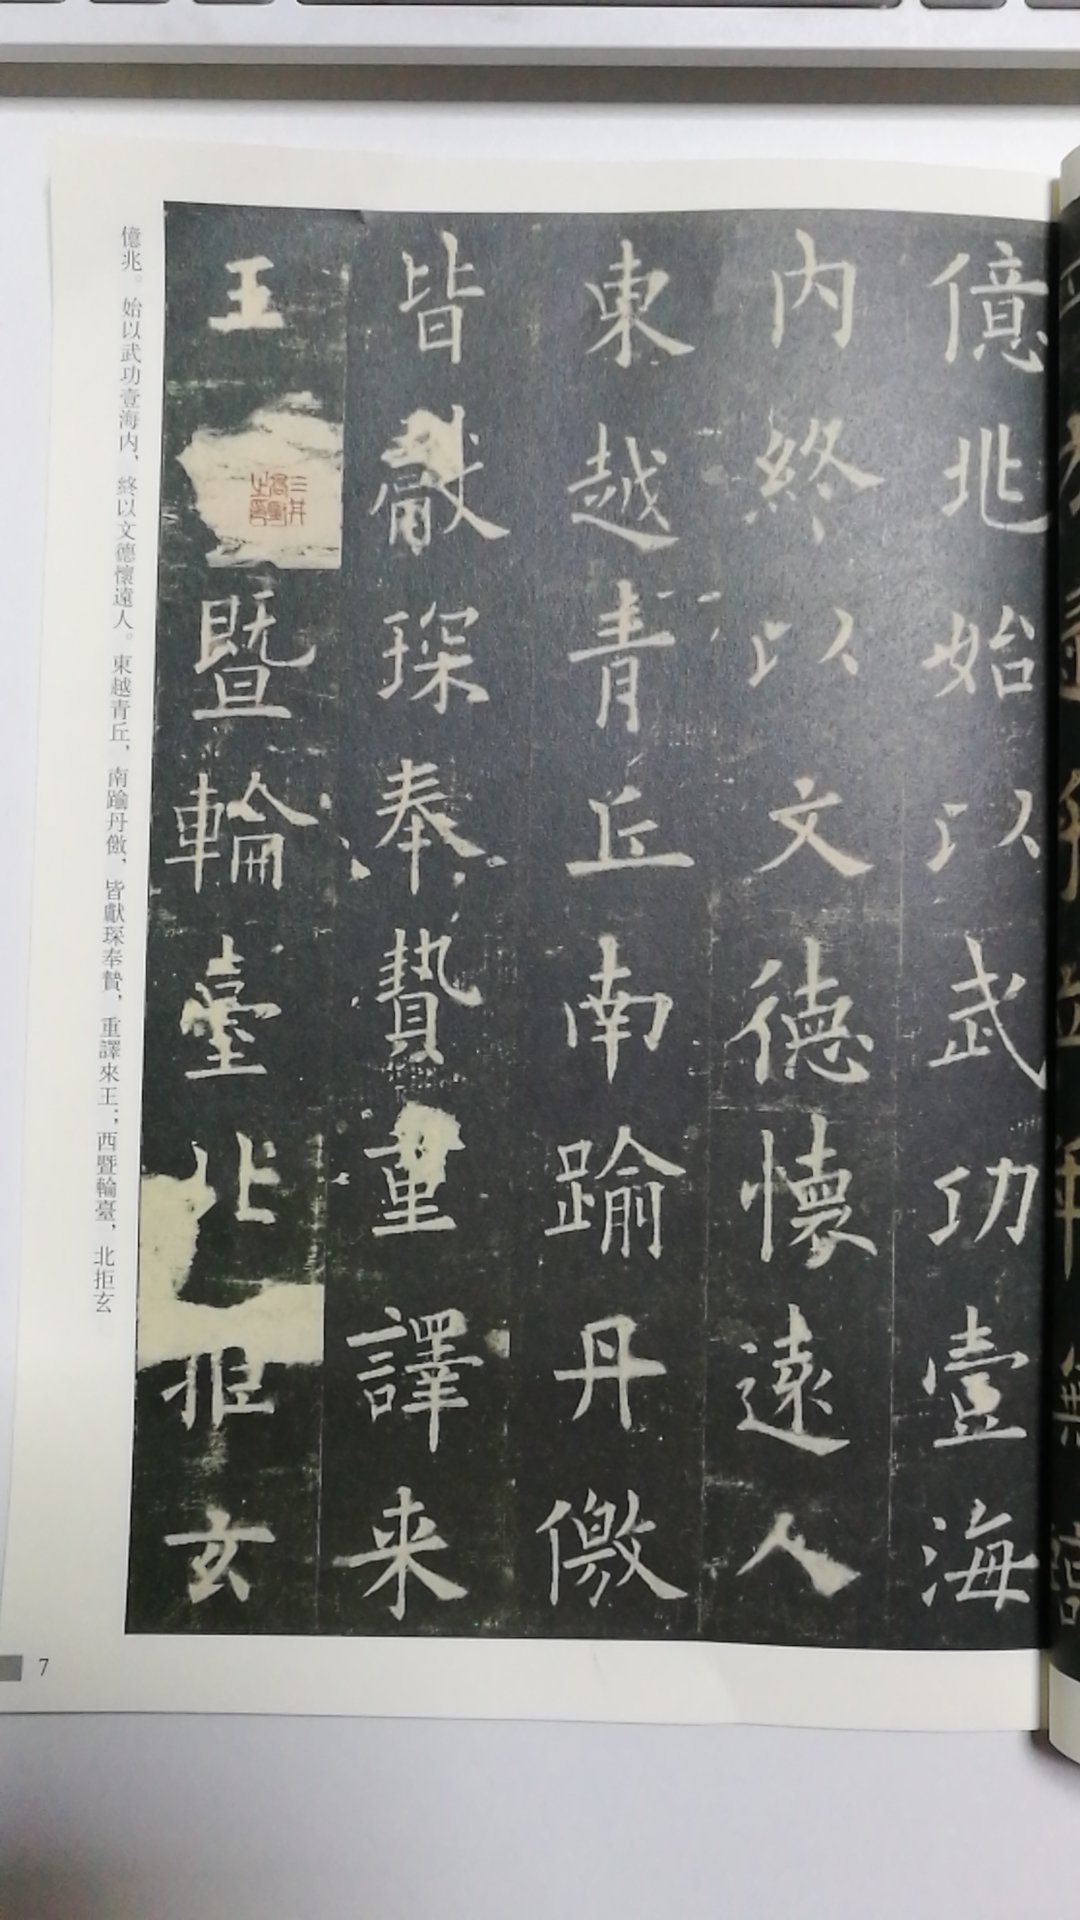 億兆始以武功壹海
内終以文德懷遠人
東越青丘南踰丹儌
皆獻琛奉贄重譯来
王暨輪臺北拒玄
億兆。始以武功壹海内，終以文德懷遠人。東越青丘，南踰丹儌，皆獻琛奉贄，重譯來王；西暨輪臺，北拒玄
7